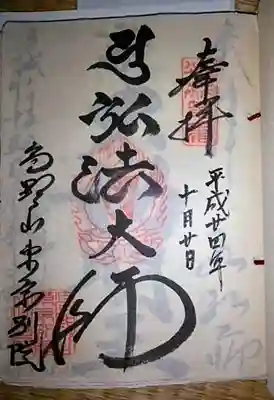 奉拝
平成廿四年
十月廿日
弘法大師
高野山東京別院